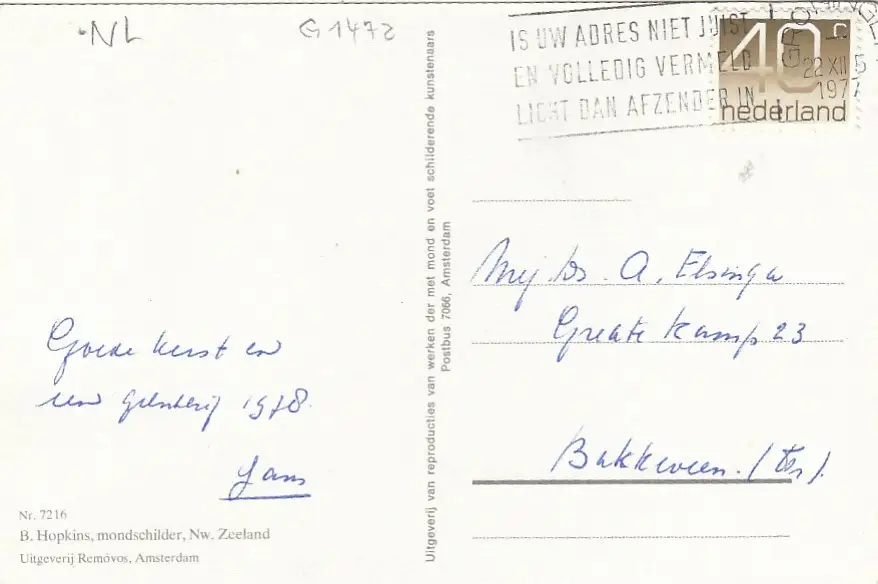 NL
G1472
IS UW ADRES NIET JUIST
EN VOLLEDIG VERMELD
LICHT DAN AFZENDER IN
40 c
22 XII 5
1977
nederland
Uitgeverij van reproducties van werken der met mond en voet schilderende kunstenaars
Postbus 7066, Amsterdam
Mej. Ds. A. Elsinga
Greate Kamp 23
Bakkeveen. (Fr).
Goede kerst en
een gelukkig 1978.
Jans
Nr. 7216
B. Hopkins, mondschilder, Nw. Zeeland
Uitgeverij Removos, Amsterdam